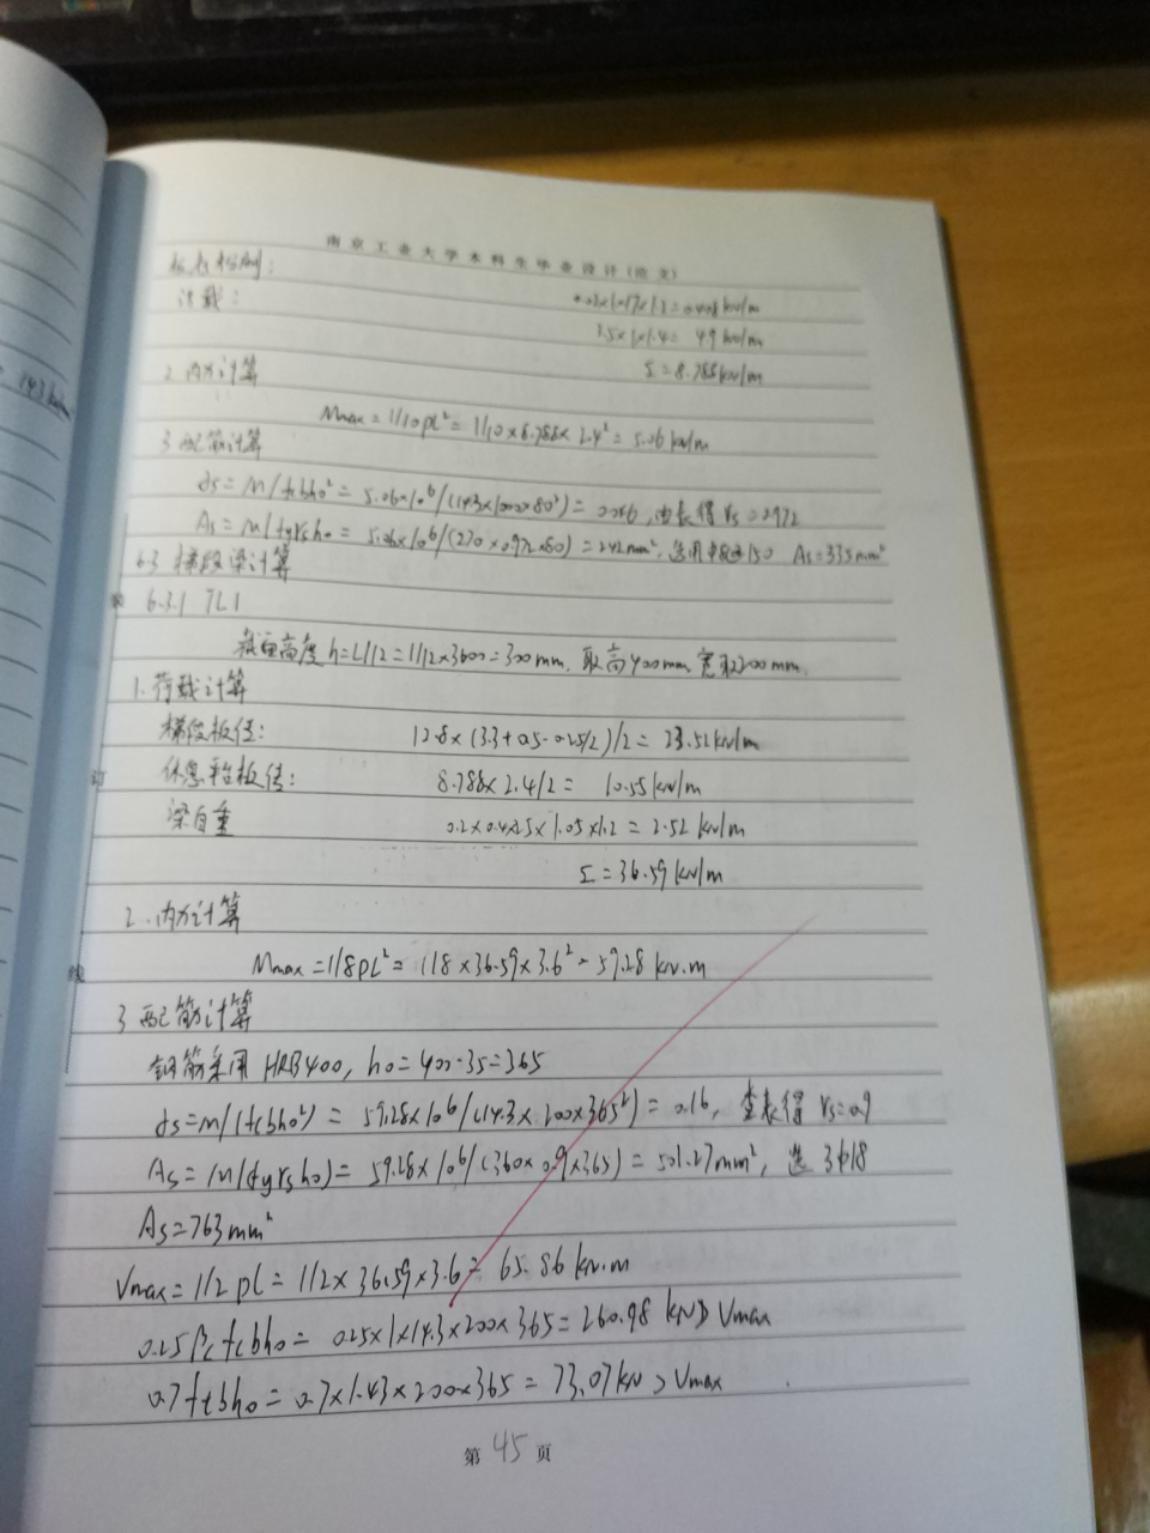 南京工业大学本科生毕业设计(论文)
板底粉刷:
活载: 0.02×1×17×1.2=0.408kN/m
3.5×1×1.4= 4.9 kN/m
Σ=8.788kN/m
2.内力计算
Mmax=1/10pl²=1/10×8.788×2.4²=5.06 kN/m
3 配筋计算
αs=M/fcbh0²=5.06×10⁶/(14.3×1000×80²)=0.056,由表得γs=0.972
As=M/fyγsh0=5.06×10⁶/(270×0.972×80)=242mm²,选用φ8@150 As=335mm²
6.3 梯段梁计算
装 6.3.1 TL1
截面高度h=L/12=1/12×3600=300mm,取高400mm,宽取200mm.
1.荷载计算
梯段板传: 12.8×(3.3+0.5-0.25/2)/2=23.52kN/m
订 休息平台板传: 8.788×2.4/2= 10.55kN/m
梁自重 0.2×0.4×25×1.05×1.2=2.52 kN/m
Σ=36.59kN/m
2.内力计算
线 Mmax=1/8pl²=1/8×36.59×3.6²=59.28 kN.m
3 配筋计算
钢筋采用 HRB400, h0=400-35=365
αs=M/(fcbh0²)=59.28×10⁶/(14.3×200×365²)=0.16, 查表得 γs=0.9
As=M/(fyγsh0)=59.28×10⁶/(360×0.9×365)=501.27mm², 选 3φ18
As=763mm²
Vmax=1/2pl=1/2×36.59×3.6=65.86 kN.m
0.25βcfcbh0=0.25×1×14.3×200×365=260.98 kN>Vmax
0.7ftbh0=0.7×1.43×200×365=73.07kN>Vmax
第 45 页